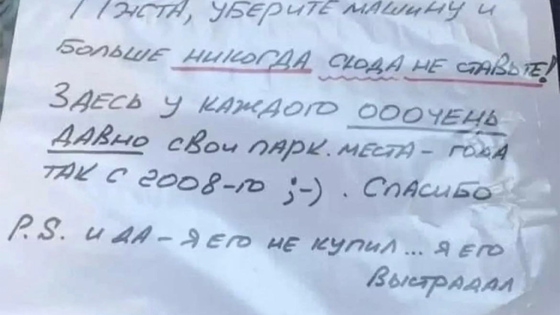 ПЖСТА, УБЕРИТЕ МАШИНУ И
БОЛЬШЕ НИКОГДА СЮДА НЕ СТАВЬТЕ!
ЗДЕСЬ У КАЖДОГО ОООЧЕНЬ
ДАВНО СВОИ ПАРК. МЕСТА – ГОДА
ТАК С 2008-ГО ;-) . СПАСИБО
P.S. И ДА – Я ЕГО НЕ КУПИЛ... Я ЕГО
ВЫСТРАДАЛ